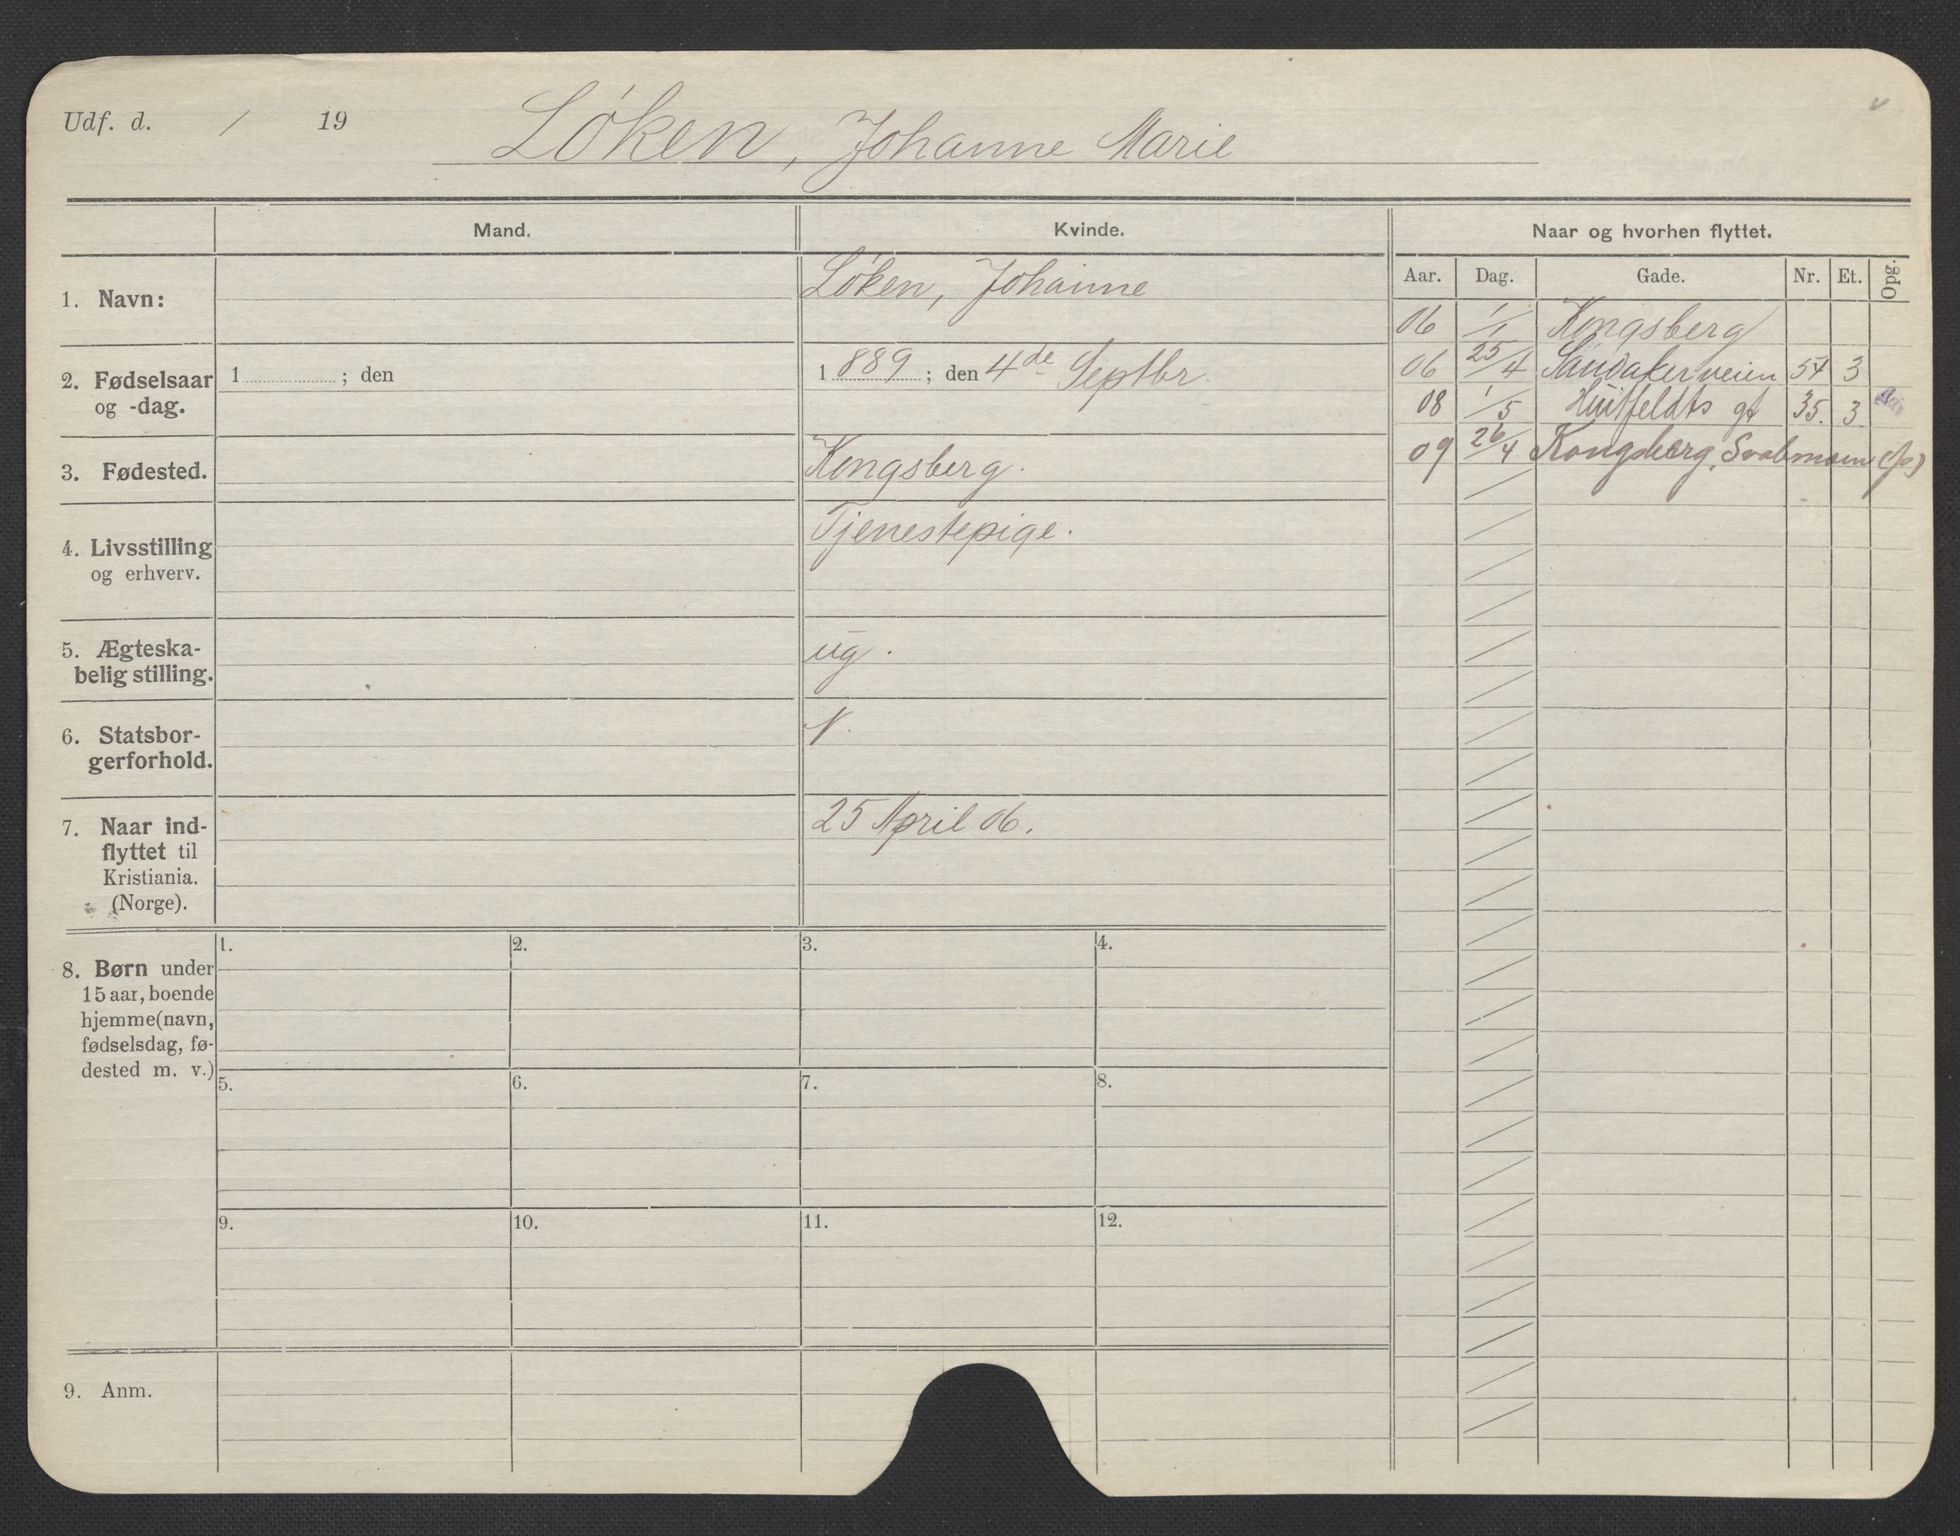 Udf. d. / 19 Løken, Johanne Marie
Mand. Kvinde. Naar og hvorhen flyttet.
Aar. Dag. Gade. Nr. Et. Opg.
1. Navn: Løken, Johanne
2. Fødselsaar 1 ; den 1889 ; den 4de Septbr.
og -dag.
3. Fødested. Kongsberg.
4. Livsstilling Tjenestepige.
og erhverv.
5. Ægteska-
belig stilling. ug.
6. Statsbor- N.
gerforhold.
7. Naar ind- 25 April 06.
flyttet til
Kristiania.
(Norge).
06 1/1 Kongsberg
06 25/4 Sandakerveien 54 3
08 1/5 Huitfeldts gt 35. 3
09 26/4 Kongsberg,
8. Børn under
15 aar, boende
hjemme (navn,
fødselsdag, fø-
dested m. v.)
1. 2. 3. 4.
5. 6. 7. 8.
9. 10. 11. 12.
9. Anm.